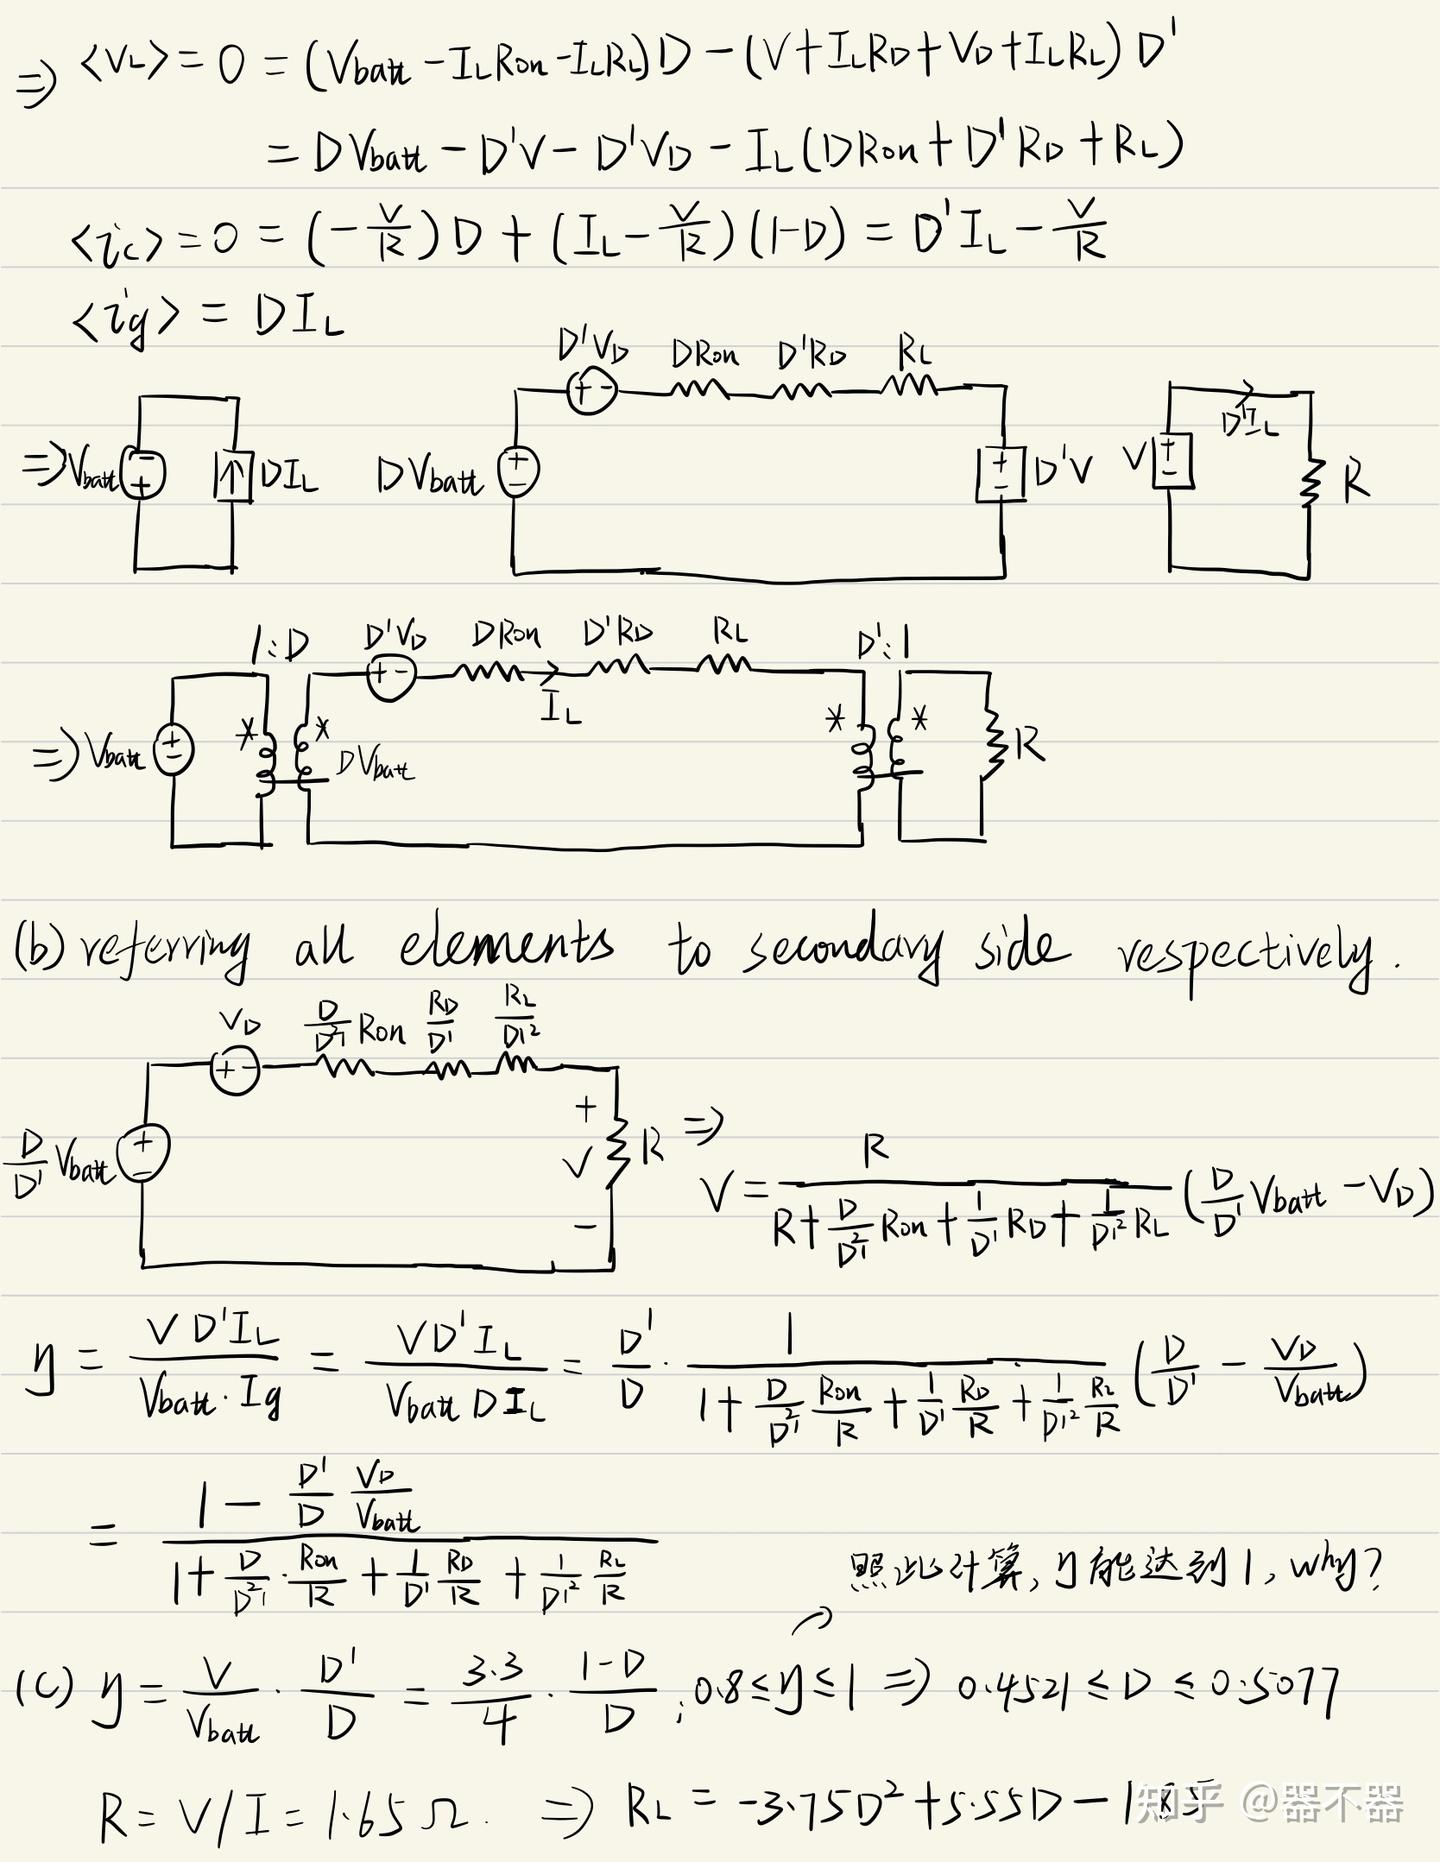 ⇒ <VL> = 0 = (Vbatt - ILRon - ILRL)D - (V + ILRD + VD + ILRL) D'
= DVbatt - D'V - D'VD - IL(DRon + D'RD + RL)
<ic> = 0 = (-V/R)D + (IL - V/R)(1-D) = D'IL - V/R
<ig> = DIL
D'VD DRon D'RD RL
⇒ Vbatt DIL DVbatt D'V V D'IL R
1:D D'VD DRon D'RD RL D':1
IL
⇒ Vbatt * * DVbatt * * R
(b) referring all elements to secondary side respectively.
VD D/D'² Ron RD/D' RL/D'²
D/D' Vbatt + V - R ⇒ V = R/(R + D/D'² Ron + 1/D' RD + 1/D'² RL) (D/D' Vbatt - VD)
η = VD'IL/(Vbatt·Ig) = VD'IL/(Vbatt DIL) = D'/D · 1/(1 + D/D'² Ron/R + 1/D' RD/R + 1/D'² RL/R) (D/D' - VD/Vbatt)
= (1 - D'/D VD/Vbatt)/(1 + D/D'² · Ron/R + 1/D' RD/R + 1/D'² RL/R)
照此计算, η能达到1, why?
(C) η = V/Vbatt · D'/D = 3.3/4 · (1-D)/D ; 0.8 ≤ η ≤ 1 ⇒ 0.4521 ≤ D ≤ 0.5077
R = V/I = 1.65 Ω. ⇒ RL = -3.75D² + 5.55D - 1.85
知乎 @器不器